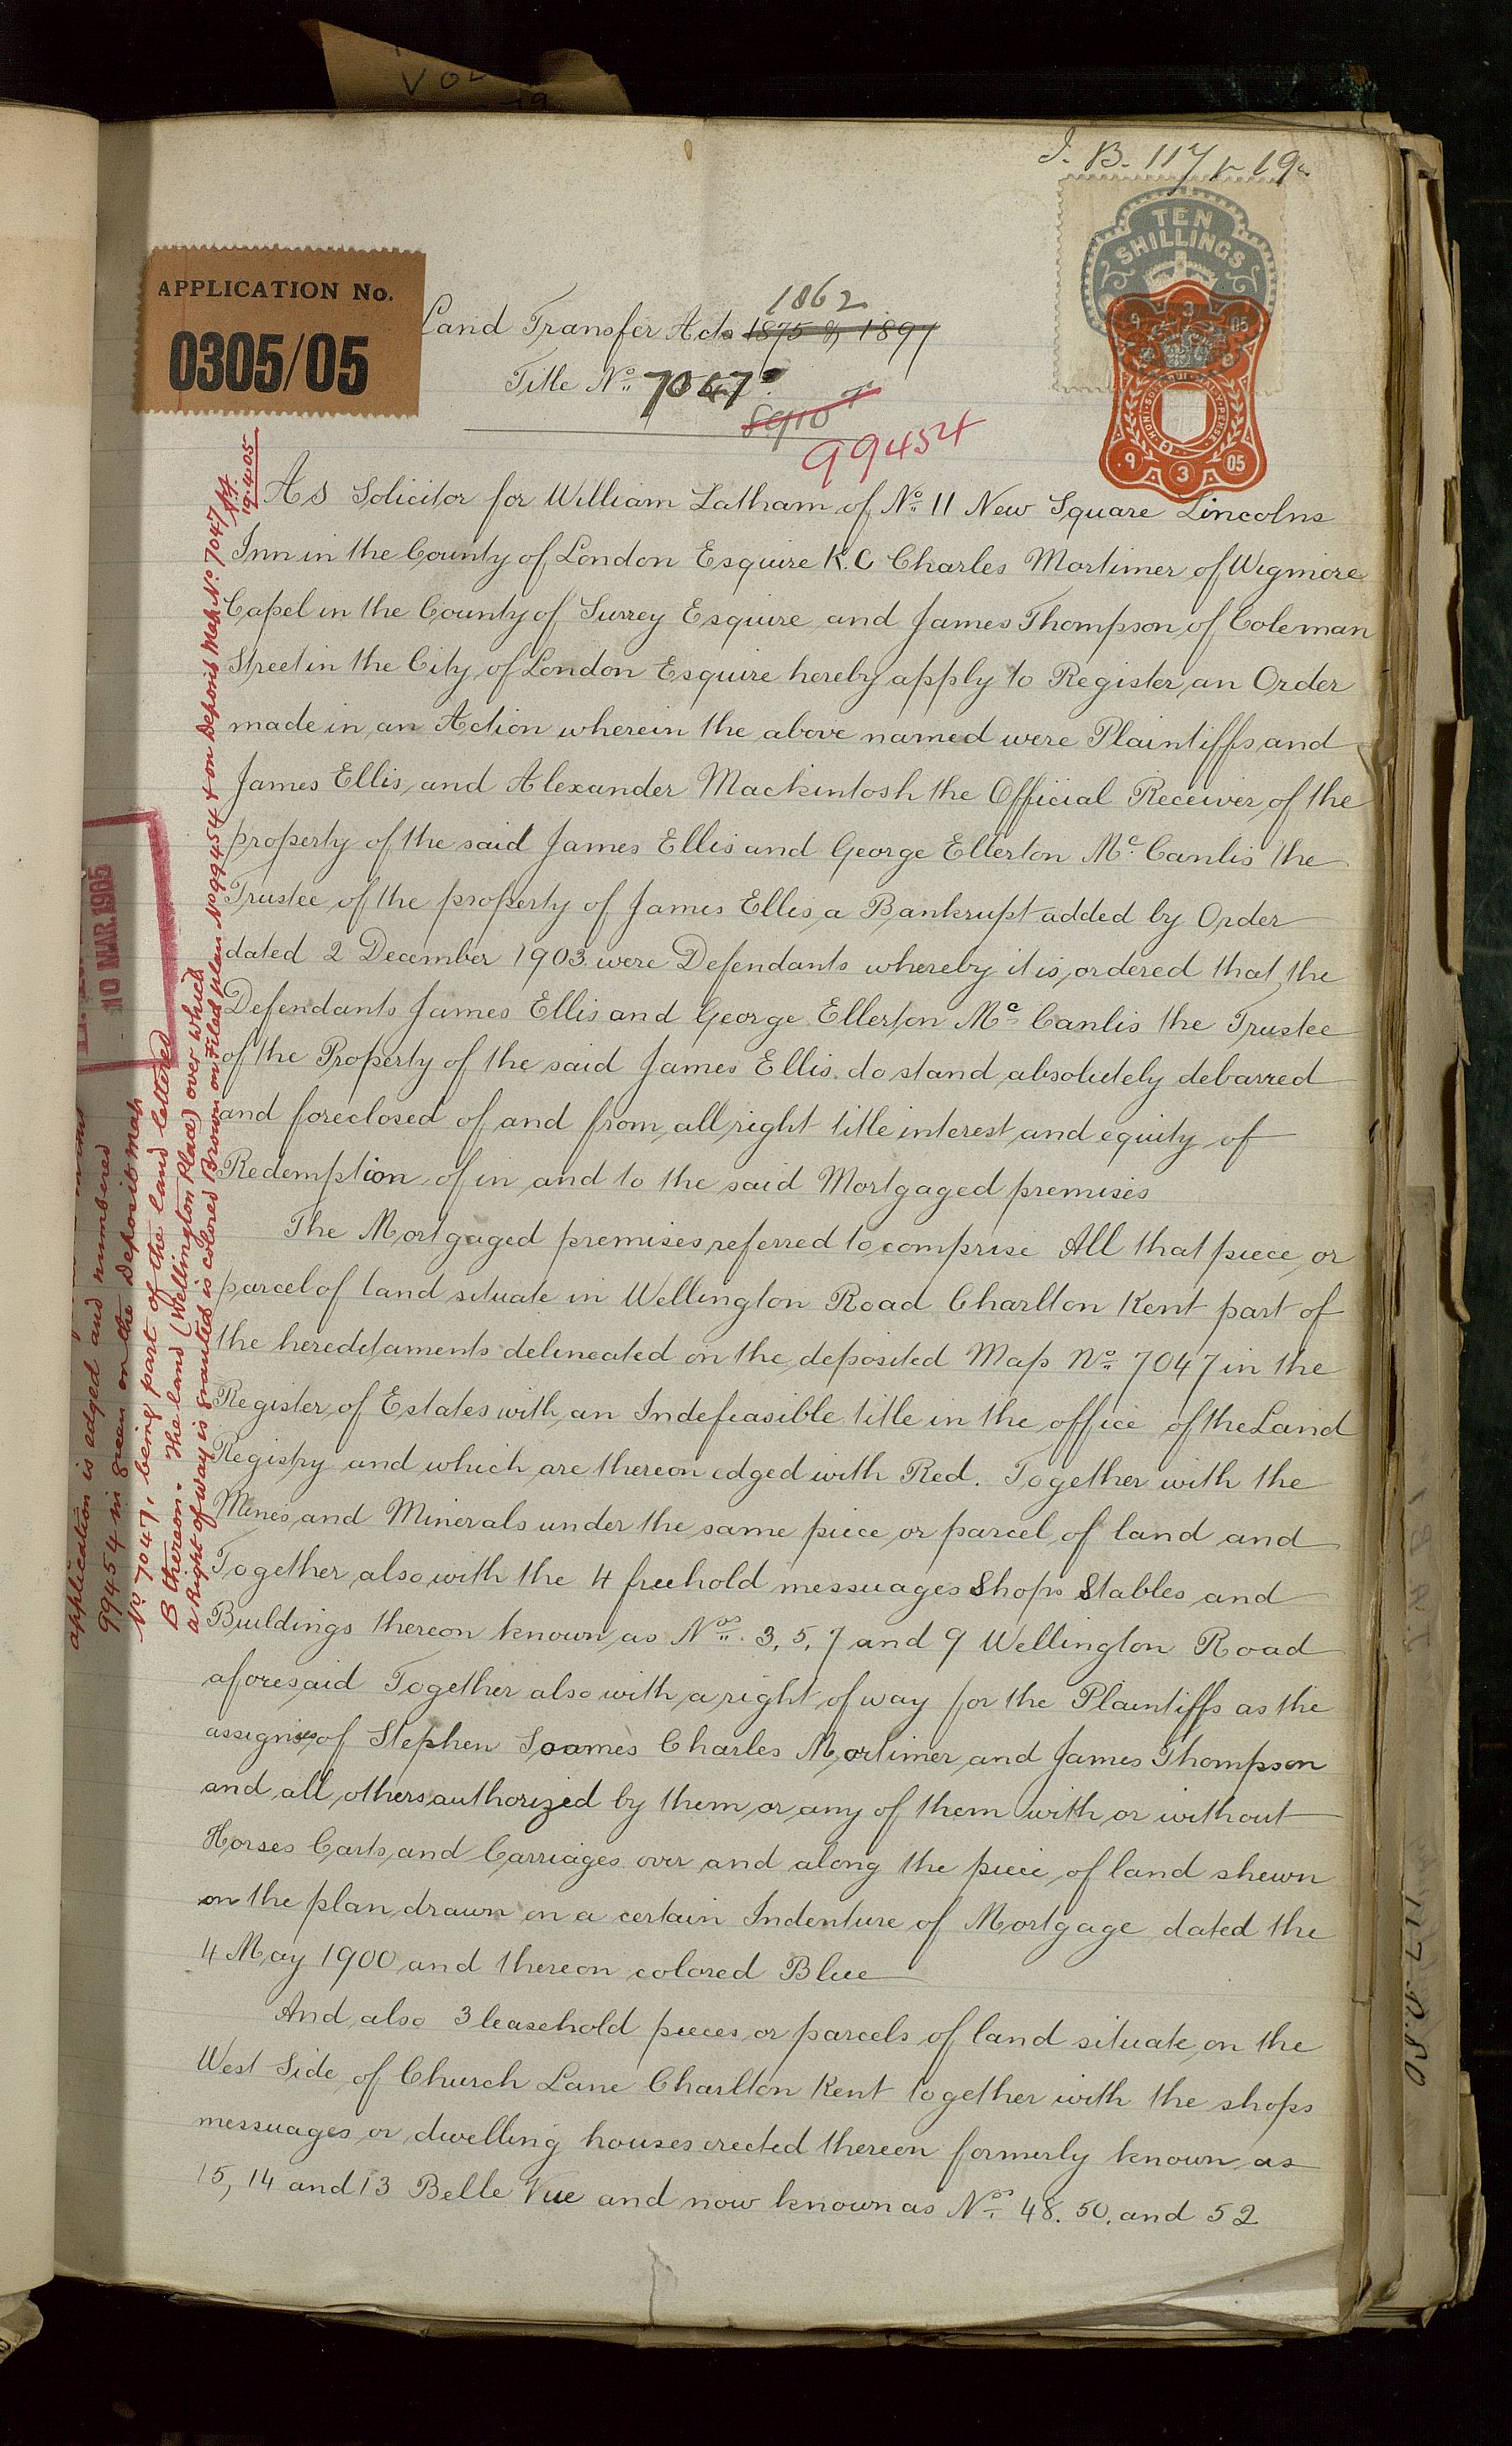 I. B. 117 p 19
TEN
SHILLINGS
9 3 05
HONI·SOIT·QUI·MAL·Y·PENSE
9 3 05
APPLICATION No.
0305/05
1862
Land Transfer Acts 1875 & 1897
Title No. 7047
8910
99454
As Solicitor for William Latham of No. 11 New Square Lincolns
Inn in the County of London Esquire K.C Charles Mortimer of Wigmore
Capel in the County of Surrey Esquire and James Thompson of Coleman
Street in the City of London Esquire hereby apply to Register an Order
made in an Action wherein the above named were Plaintiffs and
James Ellis, and Alexander Mackintosh the Official Receiver of the
property of the said James Ellis and George Ellerton McCanlis the
Trustee of the property of James Ellis a Bankrupt added by Order
dated 2 December 1903 were Defendants whereby it is ordered that the
Defendants James Ellis and George Ellerton McCanlis the Trustee
of the Property of the said James Ellis do stand absolutely debarred
and foreclosed of and from all right title interest and equity of
Redemption of in and to the said Mortgaged premises
The Mortgaged premises referred to comprise All that piece or
parcel of land situate in Wellington Road Charlton Kent part of
the hereditaments delineated on the deposited Map No. 7047 in the
Register of Estates with an Indefeasible title in the office of the Land
Registry and which are thereon edged with Red. Together with the
Mines and Minerals under the same piece or parcel of land and
Together also with the 4 freehold messuages Shops Stables and
Buildings thereon known as Nos. 3, 5, 7 and 9 Wellington Road
aforesaid Together also with a right of way for the Plaintiffs as the
assignees of Stephen Soames Charles Mortimer and James Thompson
and all others authorized by them or any of them with or without
Horses Carts and Carriages over and along the piece of land shewn
on the plan drawn on a certain Indenture of Mortgage dated the
4 May 1900 and thereon colored Blue
And also 3 leasehold pieces or parcels of land situate on the
West Side of Church Lane Charlton Kent together with the shops
messuages or dwelling houses erected thereon formerly known as
15, 14 and 13 Belle Vue and now known as Nos. 48. 50. and 52
10 MAR. 1905
application is edged and numbered
99454 in green on the Deposit Map
No. 7047, being part of the land lettered
B thereon. The land (Wellington Place) over which
a right of way is granted is colored Brown on Filed plan No 99454 & on Deposit Map No. 7047
19.4.05